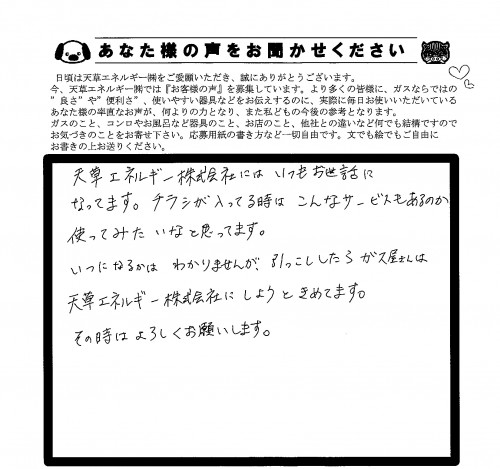 あなた様の声をお聞かせください
日頃は天草エネルギー㈱をご愛願いただき、誠にありがとうございます。
今、天草エネルギー㈱では『お客様の声』を募集しています。より多くの皆様に、ガスならではの
"良さ"や"便利さ"、使いやすい器具などをお伝えするのに、実際に毎日お使いいただいている
あなた様の率直なお声が、何よりの力となり、また私どもの今後の参考となります。
ガスのこと、コンロやお風呂など器具のこと、お店のこと、他社との違いなど何でも結構ですので
お気づきのことをお寄せ下さい。応募用紙の書き方など一切自由です。文でも絵でもご自由に
お書きの上お送りください。
天草エネルギー株式会社にはいつもお世話に
なってます。チラシが入ってる時はこんなサービスもあるのか
使ってみたいなと思ってます。
いつになるかはわかりませんが、引っこししたらガス屋さんは
天草エネルギー株式会社にしようときめてます。
その時はよろしくお願いします。